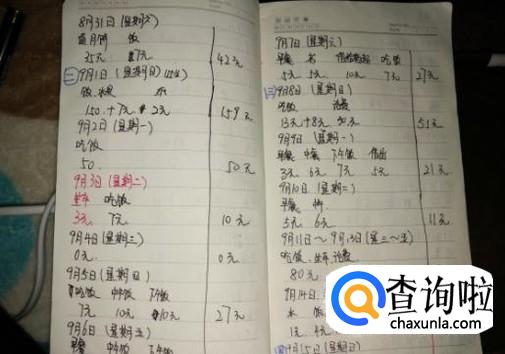 8月31日（星期六）
月饼 饭
35元 7元 42元
9月1日（星期日）
150+7元 2元 159元
9月2日（星期一）
吃饭
50 50元
9月3日（星期二）
坐车 吃饭
3元 7元 10元
9月4日（星期三）
0元 0元
9月5日（星期日）
吃饭 中饭 下午饭
7元 10元 10元 27元
9月6日（星期五）
早餐 中饭 下午饭
9月7日（星期六）
早餐 水 吃饭
5元 5元 10元 7元 27元
9月8日（星期日）
吃饭 话费
13元+8元 30元 51元
9月9日（星期一）
早餐 中餐 下午饭
3元 6元 7元 5元 21元
9月10日（星期二）
早餐
5元 6元 11元
9月11日～9月13日（星三～五）
吃饭、坐车、话费
80元
9月14日
水 饭
1元 4元
9月15日（星期日）
查询啦
chaxunla.com